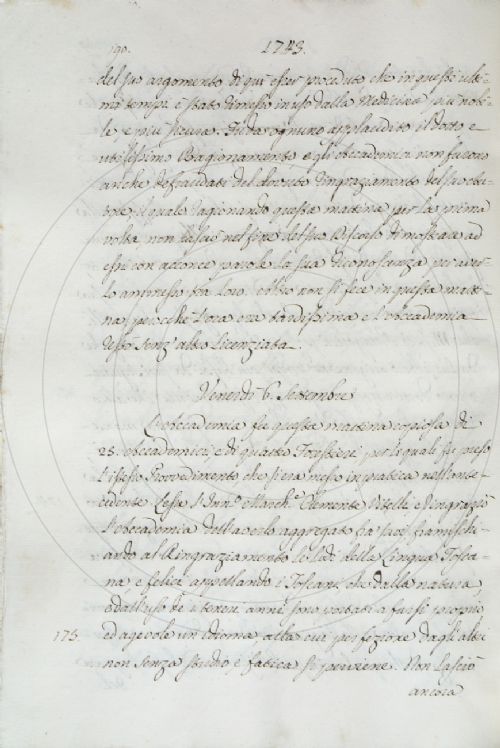 190. 1743.
del suo argomento di qui esser proceduto che in questi ulti-
mi tempi è stato dimesso in uso dalla Medicina più nobi-
le e più sicura. Fu da ognuno applaudito il dotto e
utilissimo Ragionamento e gli Accademici non furono
anche defraudati del dovuto ringraziamento del suo Au-
tore, il quale ragionando questa mattina per la prima
volta non lasciò nel fine del suo Discorso di mostrare ad
essi con acconce parole la sua riconoscenza per aver-
lo ammesso fra loro. Altro non si fece in questa matti-
na perchè l'ora era tardissima e l'Accademia
restò senz'altro licenziata.
Venerdì 6. Settembre
L'Accademia fu questa mattina copiosa di
25. Accademici e di quattro Forestieri per i quali fu preso
l'istesso Provvedimento che s'era messo in pratica nell'ante-
cedente. Lesse l' March.e Clemente Vitelli e ringraziò
l'Accademia dell'averlo aggregato fra' suoi framischi-
ando al Ringraziamento le lodi della Lingua Tosca-
na e felici appellando i Toscani che dalla natura,
e dall'uso de' teneri anni sono portati a farsi proprio
173 ed agevole un Idioma alla cui perfezione dagli altri
non senza studio e fatica si perviene. Non lasciò
ancora